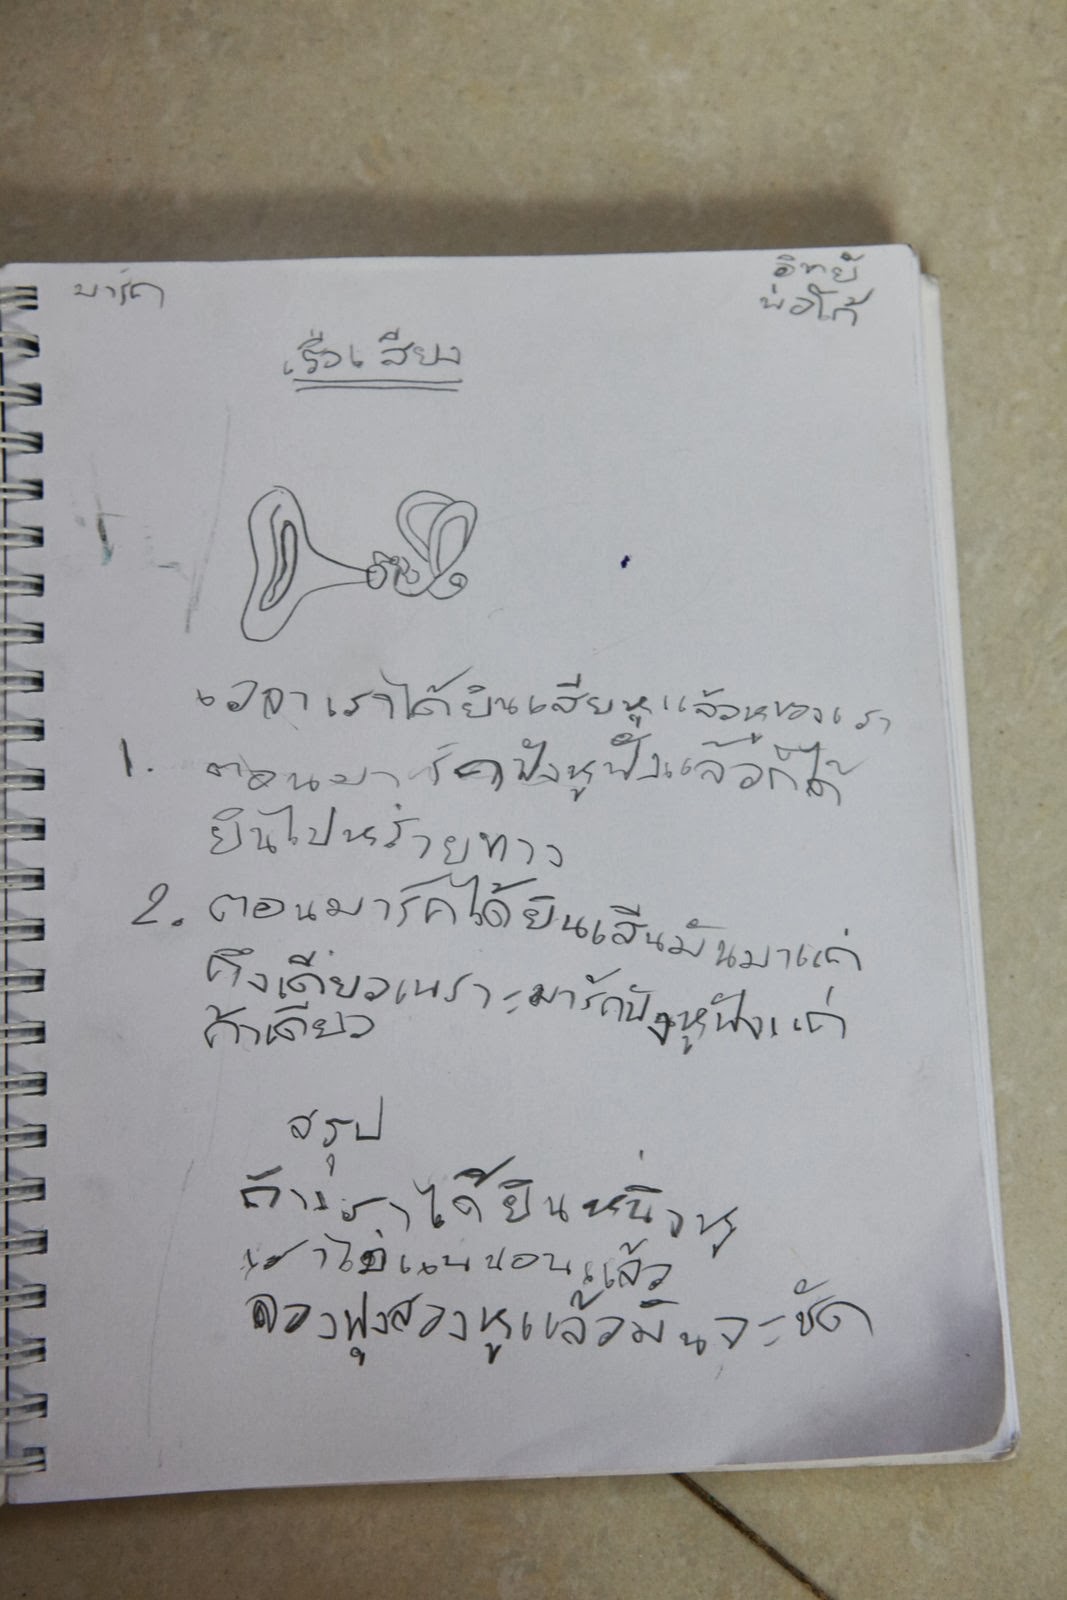 มาร์ค
วิทย์
พ่อโก้
เรื่อเสียง
เวลาเราได้ยินเสียหูแล้วหูของเรา
1. ตอนมาร์คฟังหูฟังแล้วก็ได้
ยินไปหร้ายทาง
2. ตอนมาร์คได้ยินเสีนมันมาแค่
คึงเดียวเพราะมาร์คฟังหูฟังแค่
ค้าเดียว
สรุป
ถ้าเราได้ยินหนึ่งหู
เราไม่แน่นอนแล้ว
ลองฟุงสองหูแล้วมันจะชัด